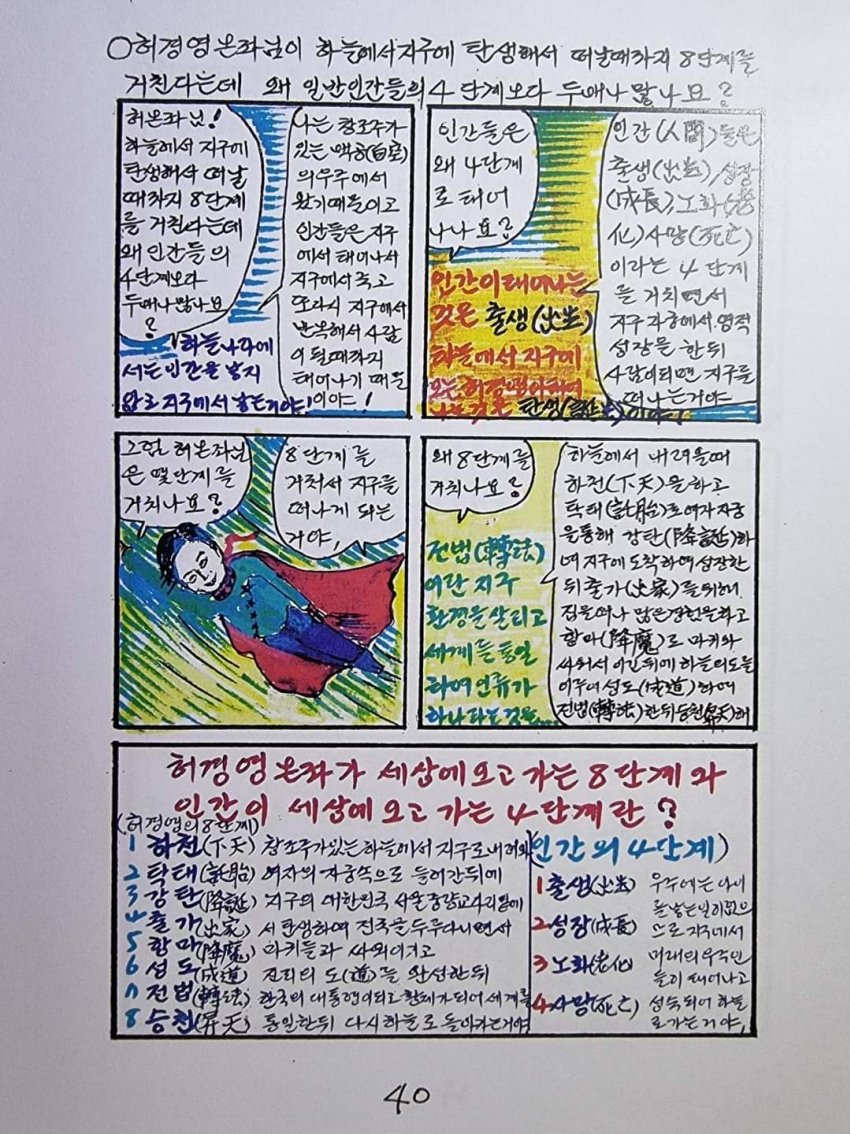 ○허경영 본좌님이 하늘에서 지구에 탄생해서 떠날때까지 8단계를
거친다는데 왜 일반인간들의 4단계보다 두배나 많나요?
허본좌님!
하늘에서 지구에
탄생해서 떠날
때까지 8단계
를 거친다는데
왜 인간들의
4단계보다
두배나 많나요
?
나는 창조주가
있는 백궁(白宮)
의 우주에서
왔기때문이고
인간들은 지구
에서 태어나서
지구에서 죽고
또다시 지구에서
반복해서 사람
이 될때까지
태어나기 때문
이야!
하늘나라에
서는 인간을 낳지
않고 지구에서 낳는거야!
인간들은
왜 4단계
로 태어
나나요?
인간(人間)들은
출생(出生), 성장
(成長), 노화(老
化) 사망(死亡)
이라는 4단계
를 거치면서
지구과정에서 영적
성장을 한뒤
사람이되면 지구를
떠나는거야
인간이 태어나는
것은 출생(出生)
하늘에서 지구에
오는 허경영이 태어
나는 것은 탄생(誕生)이야!
그럼 허본좌님
은 몇단계를
거치나요?
8단계를
거쳐서 지구를
떠나게 되는
거야,
왜 8단계를
거치나요?
하늘에서 내려올때
하천(下天)을 하고
탁태(託胎)로 여자 자궁
을통해 강탄(降誕)하
며 지구에 도착하여 성장한
뒤 출가(出家)를 위해
집을떠나 많은경험을하고
항마(降魔)로 마귀와
싸워서 이긴뒤에 하늘의도를
이루어 성도(成道)하며
전법(轉法)한뒤 승천(昇天)해
전법(轉法)
이란 지구
환경을 살리고
세계를 통일
하여 인류가
하나라는것을...
허경영 본좌가 세상에 오고 가는 8단계와
인간이 세상에 오고 가는 4단계란?
(허경영의 8단계)
1 하천(下天) 창조주가있는 하늘에서 지구로내려와
2 탁태(託胎) 여자의 자궁속으로 들어간뒤에
3 강탄(降誕) 지구의 대한민국 서울중랑교 다리밑에
4 출가(出家) 서 탄생하여 전국을 두루다니면서
5 항마(降魔) 마귀들과 싸워이기고
6 성도(成道) 진리의 도(道)를 완성한뒤
7 전법(轉法) 한국의 대통령이되고 황제가되어 세계를
8 승천(昇天) 통일한뒤 다시하늘로 돌아가는거야
(인간의 4단계)
1 출생(出生) 우주에는 아이
를낳는일이없으
2 성장(成長) 므로 지구에서
3 노화(老化) 미래의 우주인
들이 태어나고
4 사망(死亡) 성숙되어 하늘
로 가는거야,
40